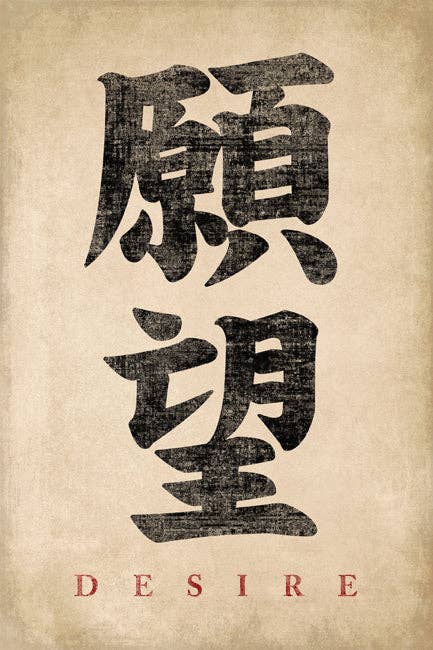 願望
DESIRE